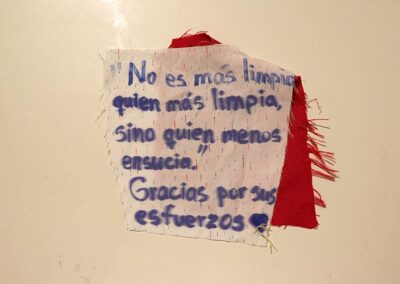 "No es más limpio
quien más limpia,
sino quien menos
ensucia."
Gracias por sus
esfuerzos